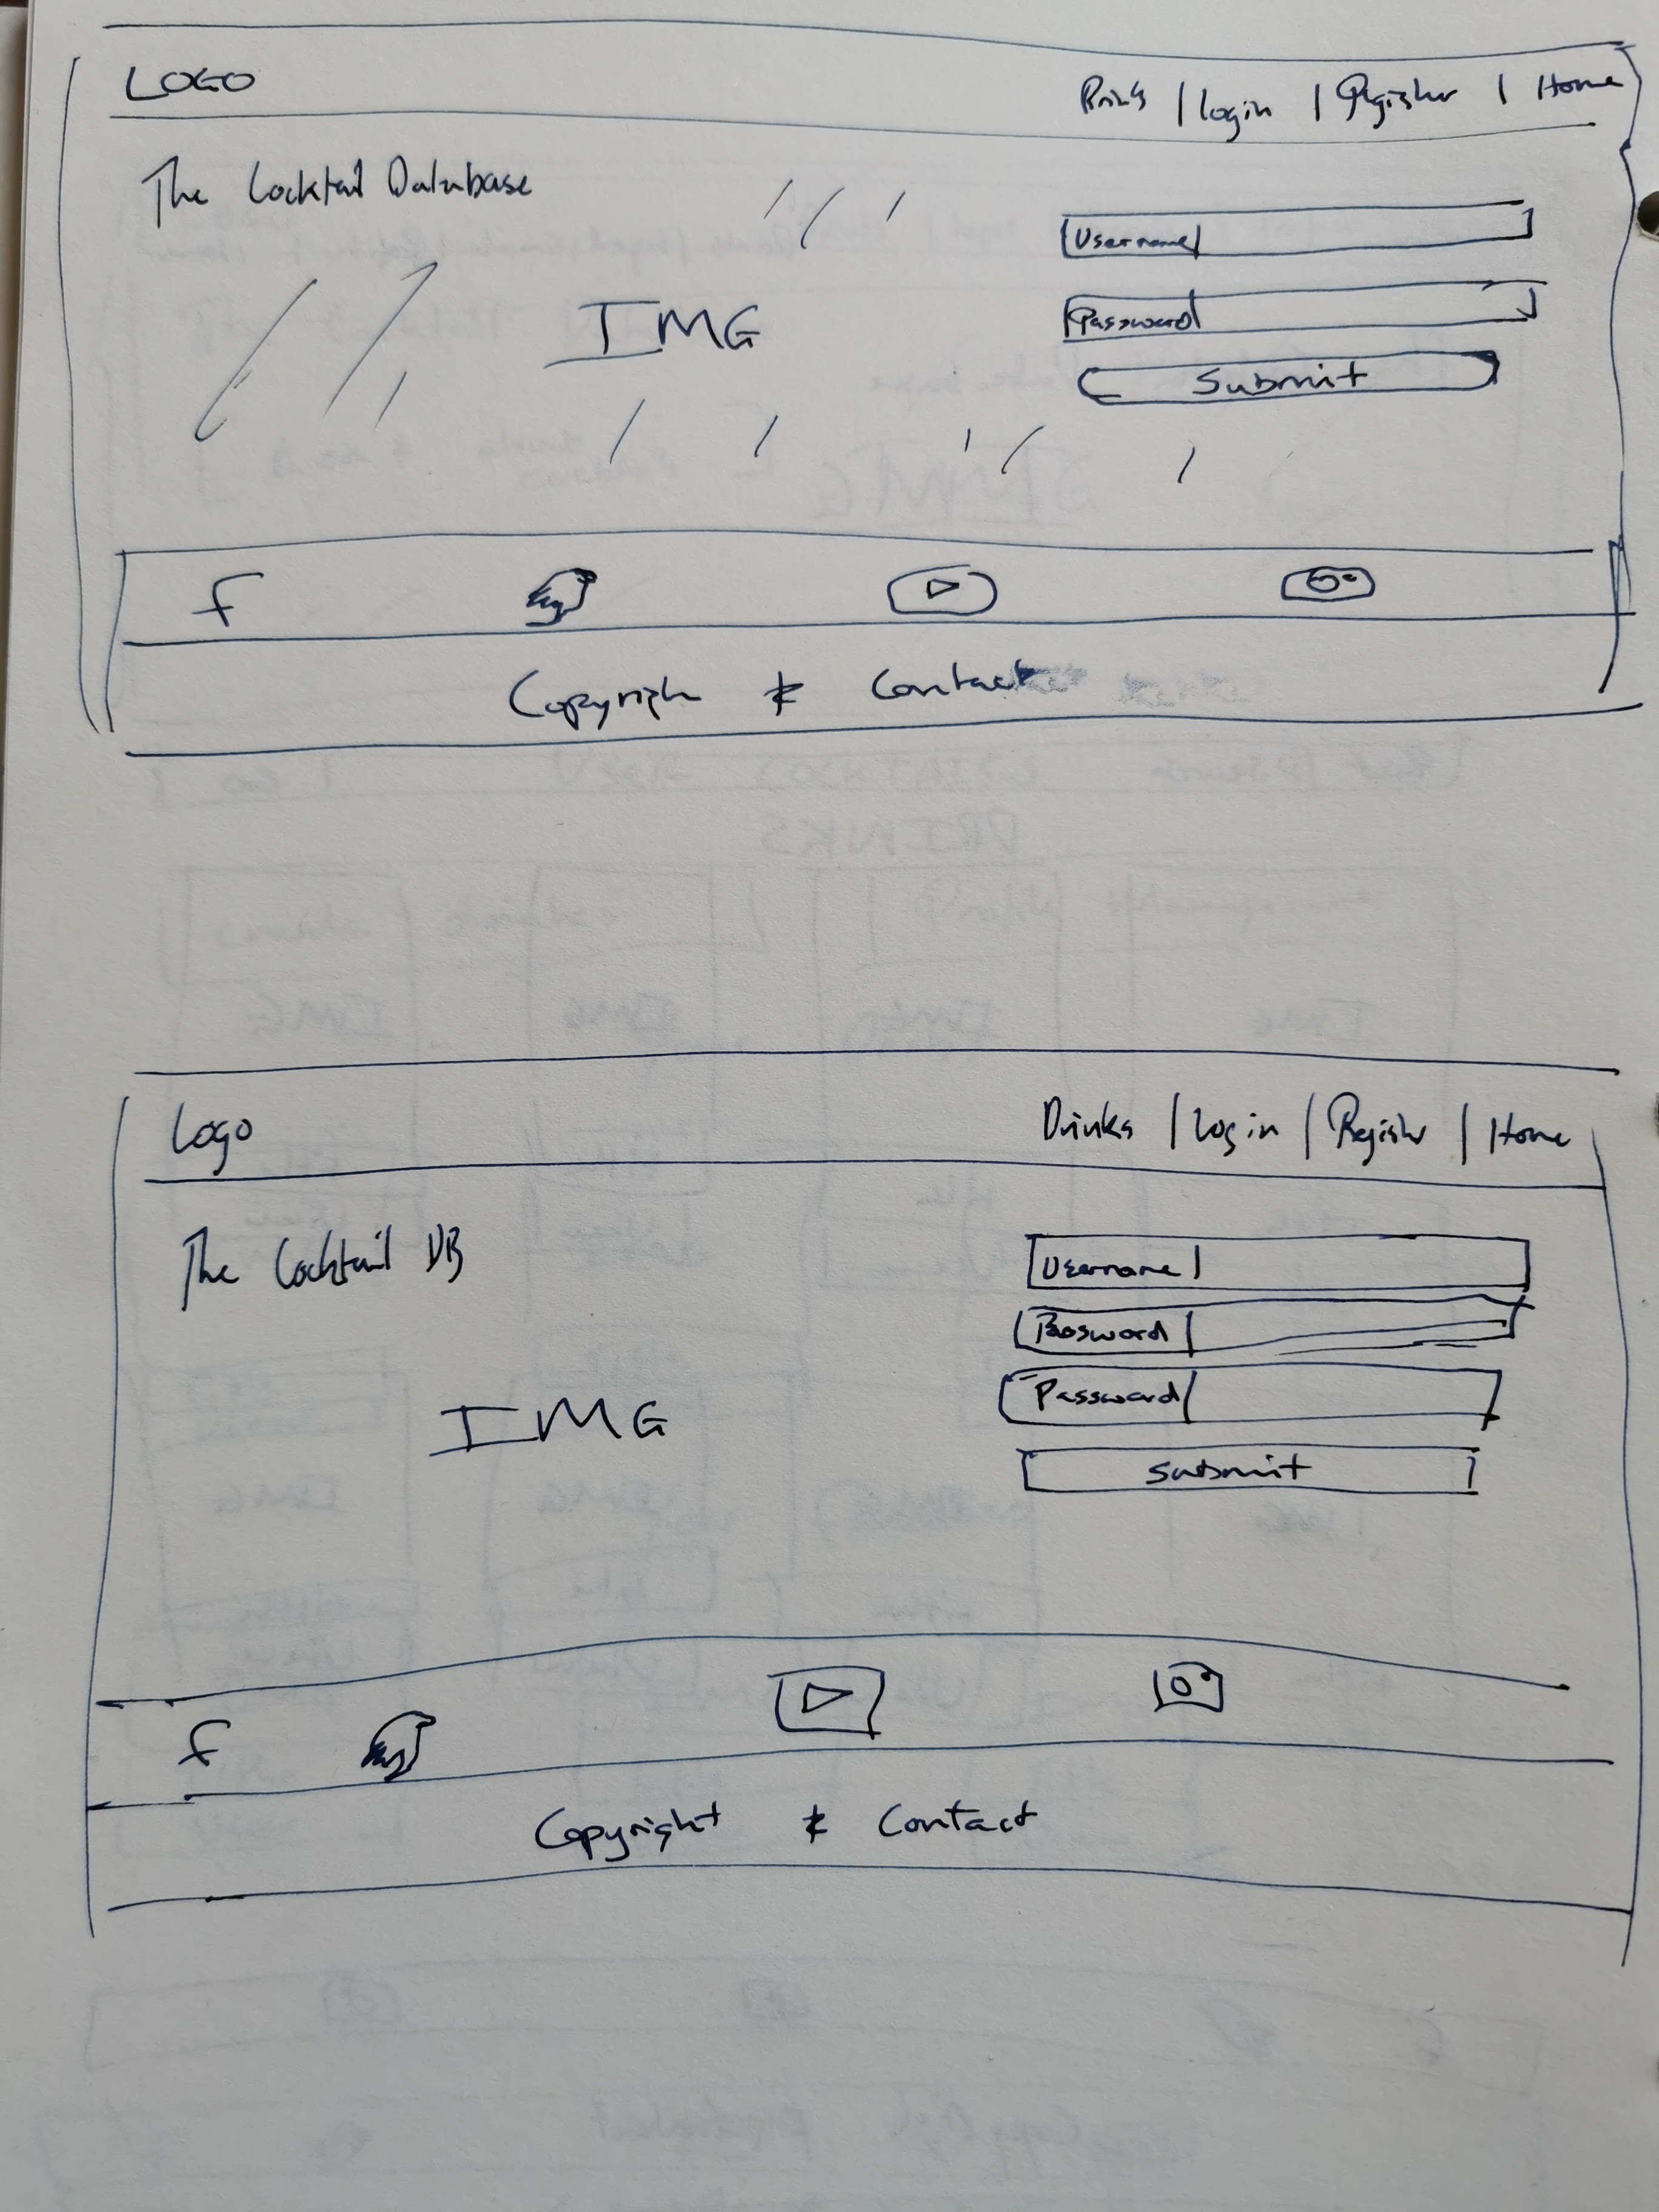 LOGO
Drinks | login | Register | Home
The Cocktail Database
Username
Password
IMG
Submit
f
Copyrigh & Contact
Logo
Drinks | Login | Register | Home
The Cocktail DB
Username
Password
Password
IMG
Submit
f
Copyright & Contact